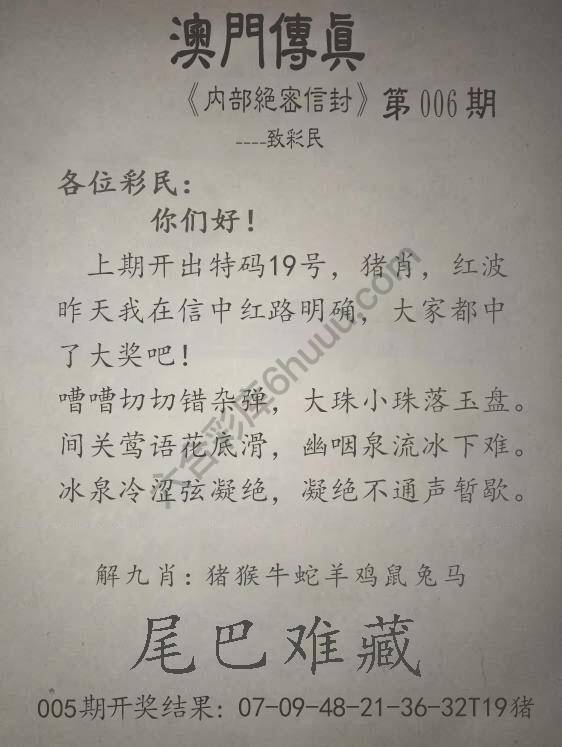 澳門傳眞
《内部絕密信封》第006期
----致彩民
各位彩民：
你们好！
上期开出特码19号，猪肖，红波
昨天我在信中红路明确，大家都中
了大奖吧！
嘈嘈切切错杂弹，大珠小珠落玉盘。
间关莺语花底滑，幽咽泉流冰下难。
冰泉冷涩弦凝绝，凝绝不通声暂歇。
六合彩库6huuu.com
解九肖：猪猴牛蛇羊鸡鼠兔马
尾巴难藏
005期开奖结果：07-09-48-21-36-32T19猪